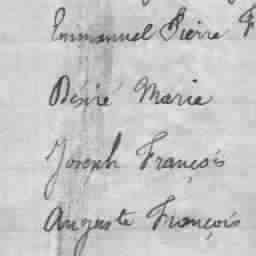 Emmanuel Pierre F
Désiré Marie
Joseph François
Auguste François